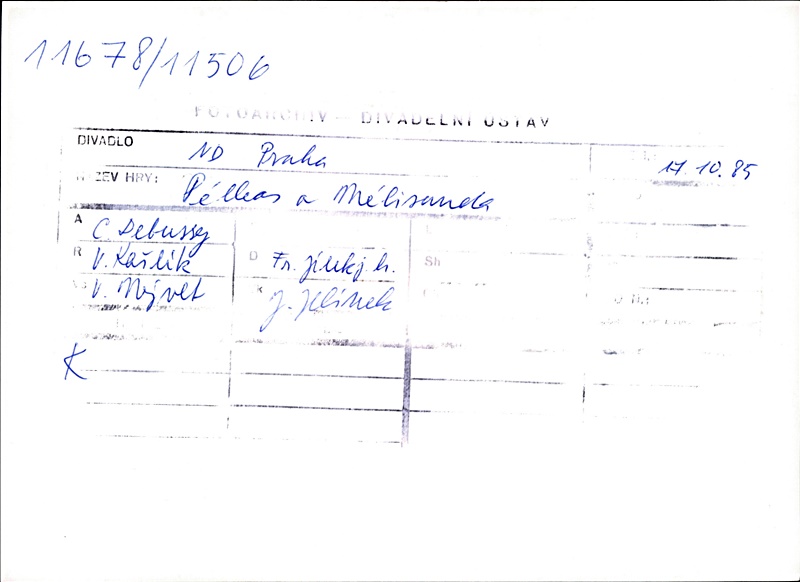 11678/11506
FOTOARCHIV — DIVADELNÍ ÚSTAV
DIVADLO ND Praha 17.10.85
NÁZEV HRY: Pélleas a Mélisanda
A C. Debussy
R V. Kašlík D Fr. Jílek j. h. Sh
V. Nývlt J. Jelínek
K